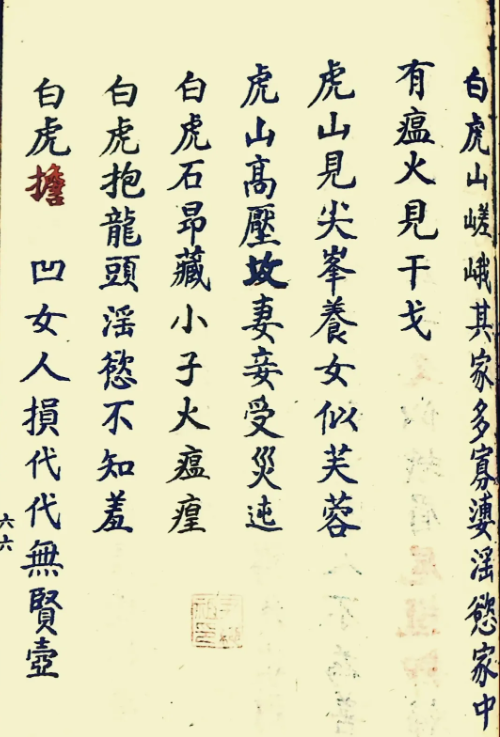 白虎山嵯峨其家多寡婆淫慾家中
有瘟火見干戈
虎山見尖峯養女似芙蓉
虎山高壓故妻妾受災迍
白虎石昂藏小子火瘟瘴
白虎抱龍頭淫慾不知羞
白虎擔 凹女人損代代無賢壺
六六